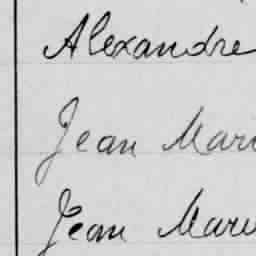 Alexandre
Jean Mari
Jean Marie